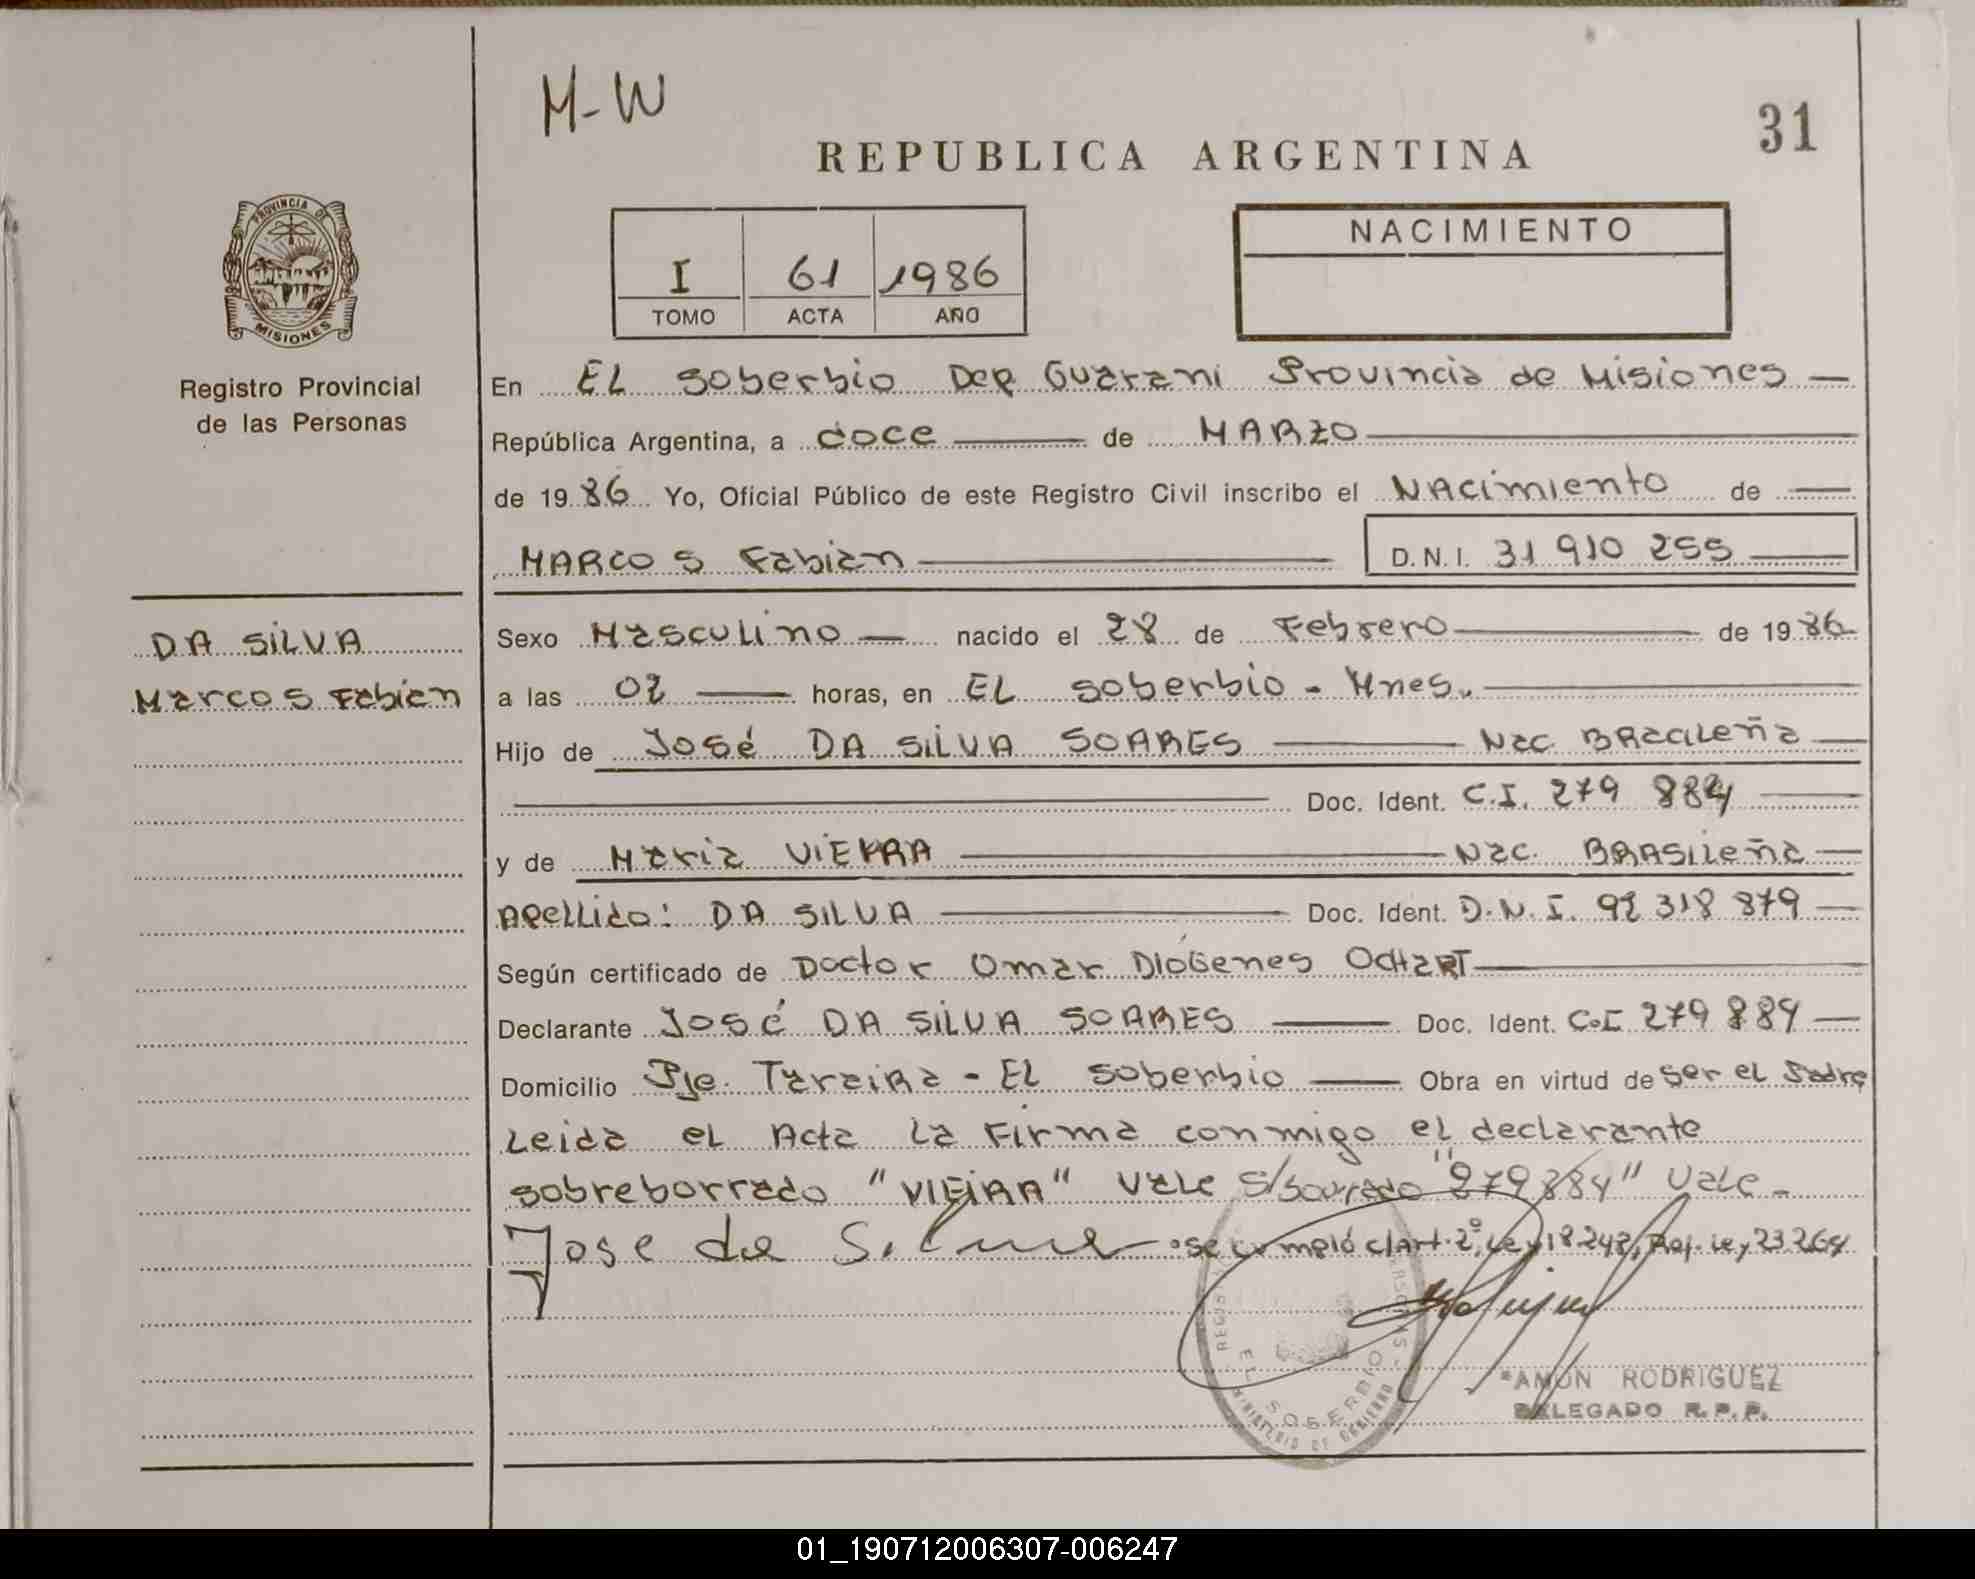 M-W
31
REPUBLICA ARGENTINA
PROVINCIA DE
MISIONES
Registro Provincial
de las Personas
I 61 1986
TOMO ACTA AÑO
NACIMIENTO
En EL Soberbio Dep Guarani Provincia de Misiones
República Argentina, a doce de MARZO
de 19 86 Yo, Oficial Público de este Registro Civil inscribo el NAcimiento de
MARCOS Fabian D.N.I. 31 910 255
DA SiLVA
Marcos Fabian
Sexo Masculino nacido el 28 de Febrero de 19 86
a las 02 horas, en EL Soberbio - Mnes.
Hijo de José DA SiLVA SOARES Nac. BRACILeña
Doc. Ident. C.I. 279 884
y de Maria ViEIRA Nac. BRASILeña
Apellido: DA SILVA Doc. Ident. D.N.I. 92 318 879
Según certificado de Doctor Omar Diógenes OCHaRT
Declarante José DA SiLVA SOARES Doc. Ident. C.I 279 884
Domicilio Pje. Taraira - EL Soberbio Obra en virtud de ser el Padre
Leida el Acta La Firma conmigo el declarante
sobreborrado "VIEiRA" Vale s/borrado "279 884" Vale -
Jose da Silva se cumplió c/art. 2º, Ley 18 248, Ref. Ley 23 264
EL SOBERBIO
MINISTERIO DE GOBIERNO
RAMON RODRIGUEZ
DELEGADO R.P.P.
01_190712006307-006247